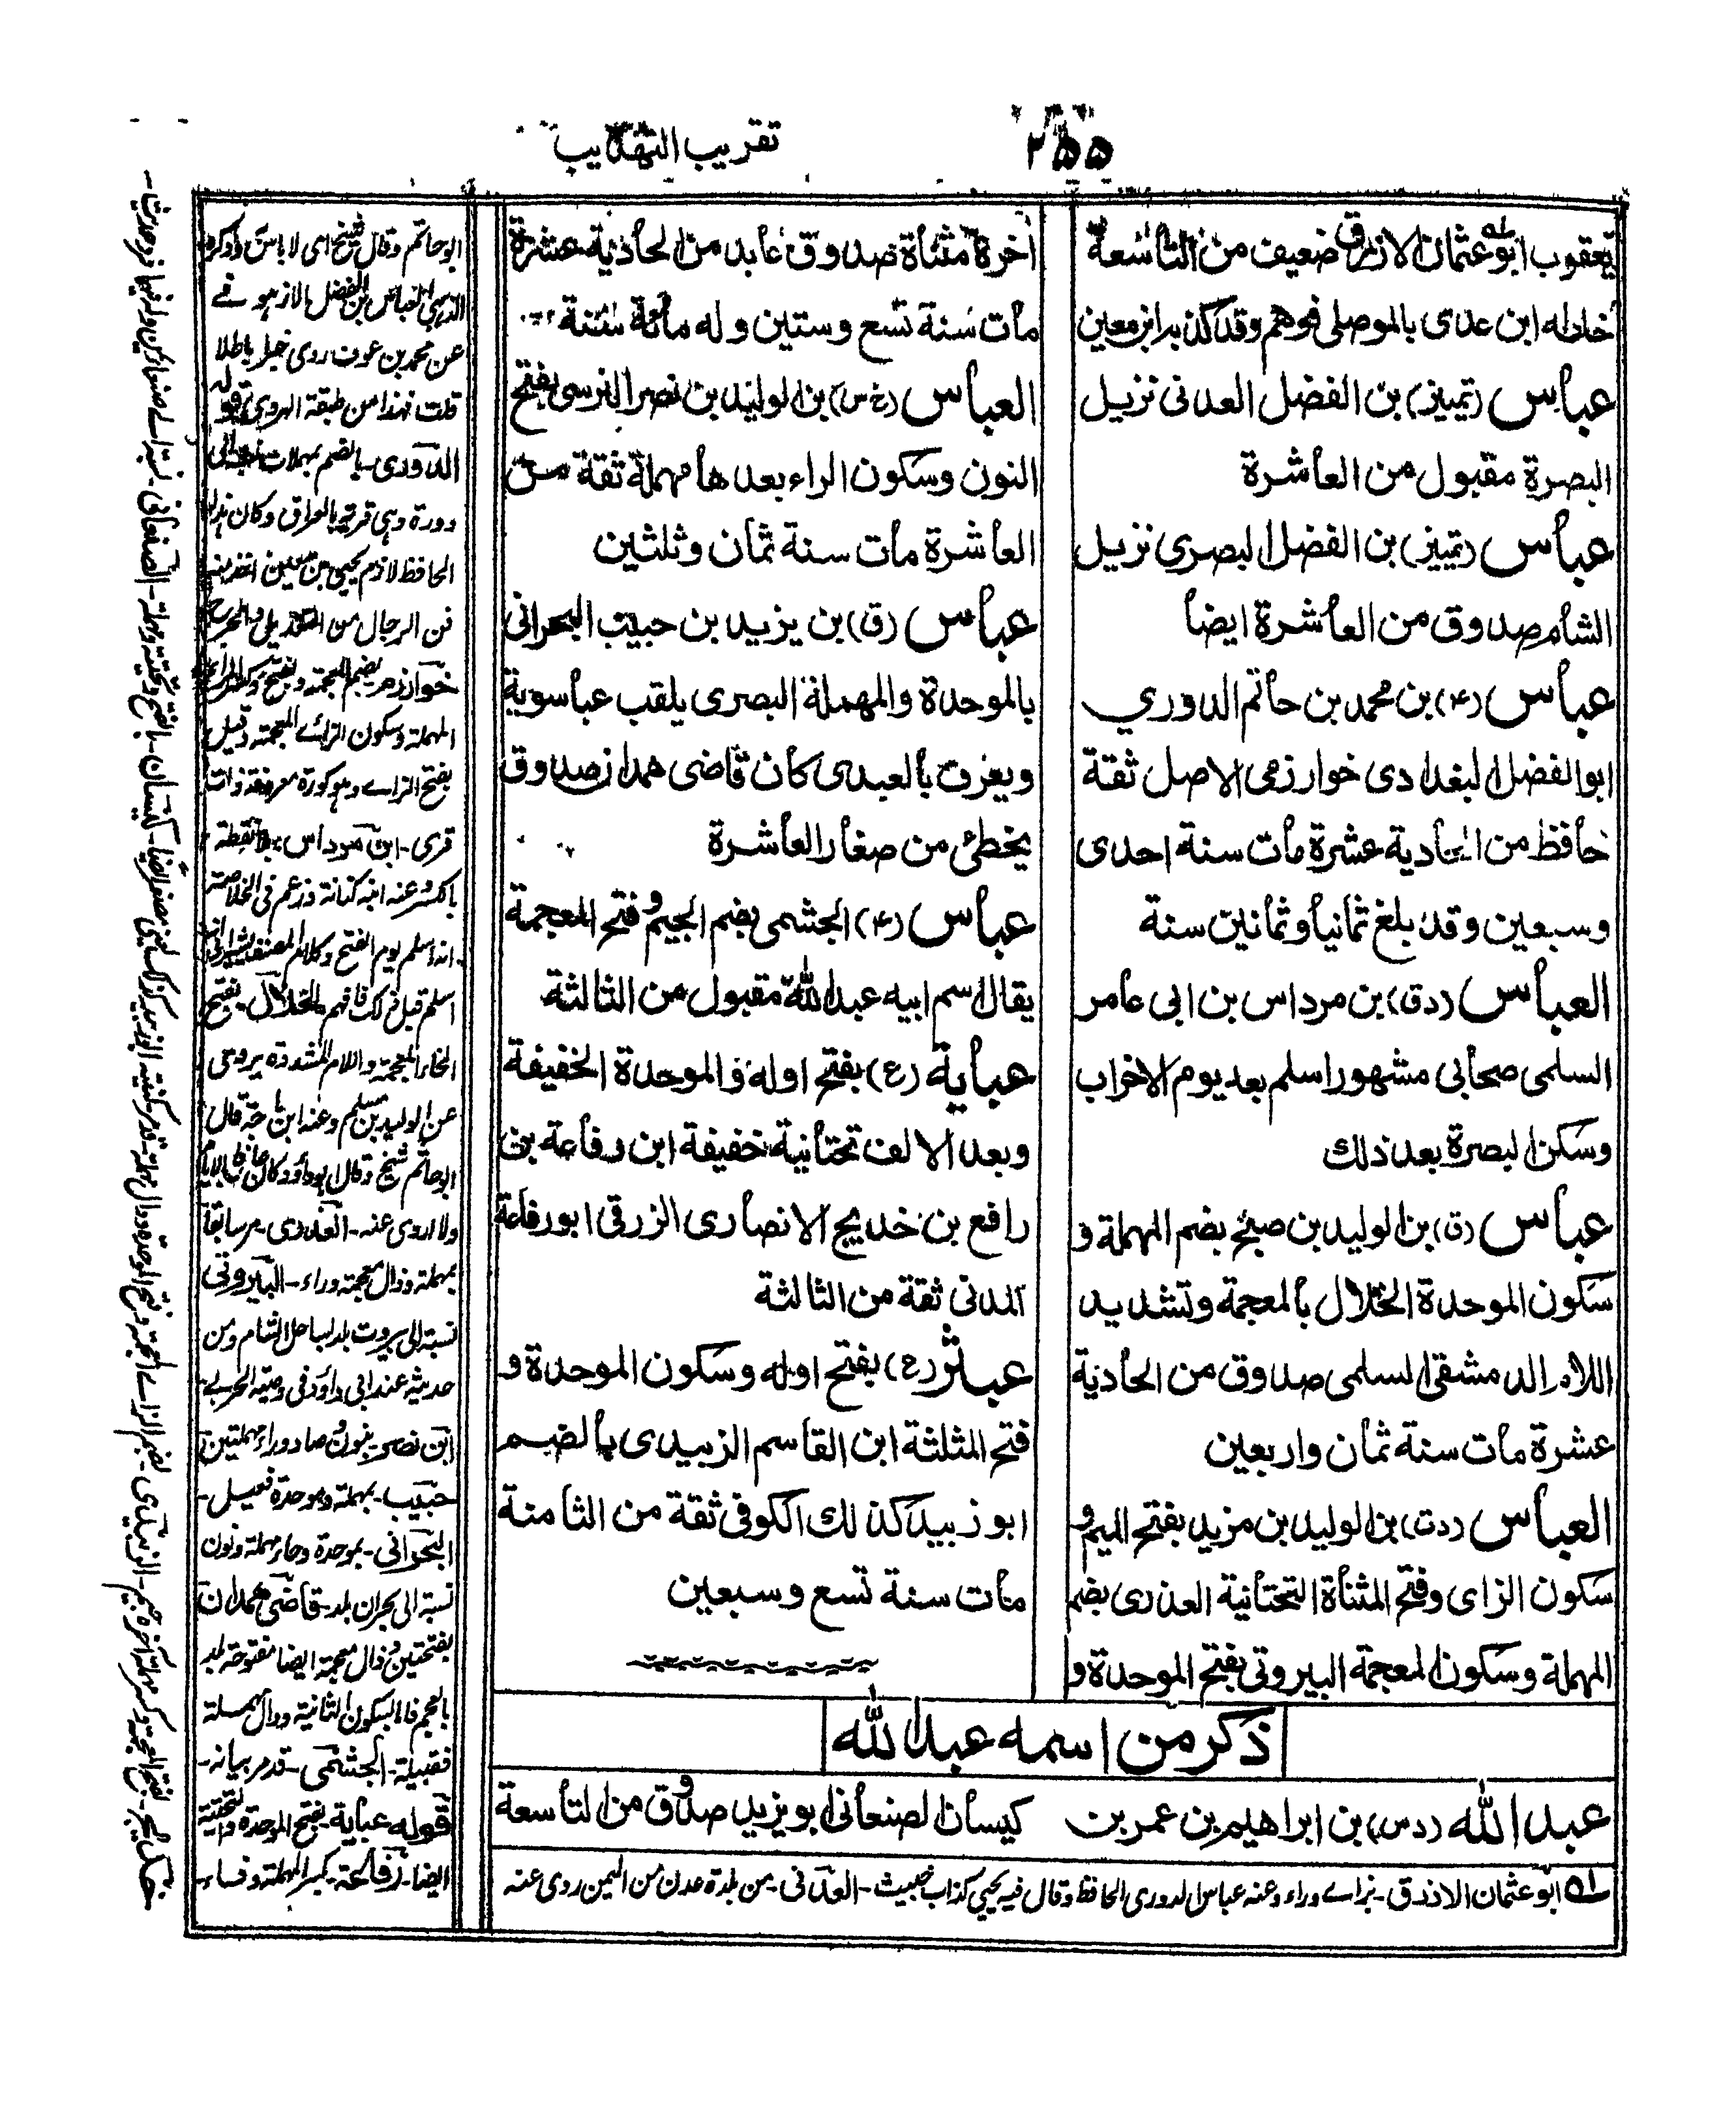 تقريب التهذيب
٢٥٥
يعقوب ابو عثمان الازرق ضعيف من التاسعة
خلطه ابن عدى بالموصلى فوهم وقد كذبه ابن معين
عباس (تمييز) بن الفضل العدنى نزيل
البصرة مقبول من العاشرة
عباس (تمييز) بن الفضل البصري نزيل
الشام صدوق من العاشرة ايضا
عباس (۴) بن محمد بن حاتم الدوري
ابو الفضل البغدادى خوارزمى الاصل ثقة
حافظ من الحادية عشرة مات سنة احدى
وسبعين وقد بلغ ثمانيا وثمانين سنة
العباس (دق) بن مرداس بن ابى عامر
السلمى صحابى مشهور اسلم بعد يوم الاحزاب
وسكن البصرة بعد ذلك
عباس (ق) بن الوليد بن صبح بضم المهملة و
سكون الموحدة الخلال بالمعجمة وتشديد
اللام الدمشقى السلمى صدوق من الحادية
عشرة مات سنة ثمان واربعين
العباس (دت) بن الوليد بن مزيد بفتح الميم و
سكون الزاى وفتح المثناة التحتانية العذرى بضم
المهملة وسكون المعجمة البيروتى بفتح الموحدة و
اخره مثناة صدوق عابد من الحادية عشرة
مات سنة تسع وستين وله مائة سنة
العباس (خ س) بن الوليد بن نصر النرسى بفتح
النون وسكون الراء بعدها مهملة ثقة من
العاشرة مات سنة ثمان وثلثين
عباس (ق) بن يزيد بن حبيب البحرانى
بالموحدة والمهملة البصرى يلقب عباسوية
ويعرف بالعبدى كان قاضى همدان صدوق
يخطئ من صغار العاشرة
عباس (۴) الجشمى بضم الجيم وفتح المعجمة
يقال اسم ابيه عبد الله مقبول من الثالثة
عباية (ع) بفتح اوله والموحدة الخفيفة
وبعد الالف تحتانية خفيفة ابن رفاعة بن
رافع بن خديج الانصارى الزرقى ابو رفاعة
المدنى ثقة من الثالثة
عبثر (ع) بفتح اوله وسكون الموحدة و
فتح المثلثة ابن القاسم الزبيدى بالضم
ابو زبيد كذلك الكوفى ثقة من الثامنة
مات سنة تسع وسبعين
ذكر من اسمه عبد الله
عبد الله (دس) بن ابراهيم بن عمر بن كيسان الصنعانى ابو يزيد صدوق من التاسعة
ابو عثمان الازرق - بزاے وراء وعنه عباس الدورى الحافظ وقال فيه يحيى كذاب خبيث - العدنى - من بلدة عدن من اليمن روى عنه
ابو حاتم وقال شيخ اى لا باس وذكره
الذهبى العباس بن الفضل الازهو فے
عن محمد بن عوف روى خبرا باطلا
قلت فهذا من طبقة الهروى قوله
الدورى - بالضم بمهملات نسبة الى
دورة وهى قرية بالعراق وكان هذا
الحافظ لازم يحيى بن معين
فن الرجال من التعديل والجرح
خوارزم - بضم المعجمة وبفتح وكسر الراء
المهملة وسكون الزاے المعجمة وقيل
بفتح الزاے وهو كورة معروفة ذات
قرى - ابن مرداس -
بالكسر وعنه ابنه كنانة وزعم فى الخلاصة
انه اسلم يوم الفتح وكلام المصنف يشير الى انه
اسلم قبل ذلك فافهم الخلال - بفتح
الخاء المعجمة واللام المشددة يروى
عن الوليد بن مسلم وعنه ابن ماجة قال
ابو حاتم شيخ وقال ابو داود كان
ولا اروى عنه - العذرى - مر سابقا
بمهملة وذال معجمة وراء - البيروتى
نسبة الى بيروت بلد بساحل الشام ومن
حديثه عند ابى داؤد فى وصية الحربى -
ابن نصر - بنون وصاد وراء مهملتين
حبيب - بمهملة وموحدة فعيل -
البحرانى - بموحدة وحاء مهملة ونون
نسبة الى بحران بلد - قاضى همدان
بفتحتين وذال معجمة ايضا مفتوحة بلد
بالعجم فاما بسكون الثانية ودال مهملة
فقبيلة - الجشمى - قد مر بيانه -
قوله عباية - بفتح الموحدة والتحتية
ايضا - رفاعة - بكسر المهملة وفاء -